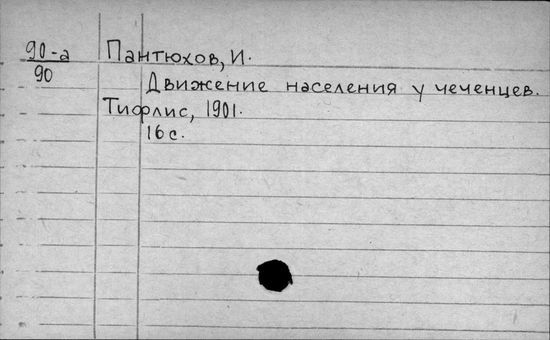 90-а Пантюхов, И.
90
Движение населения у чеченцев.
Тифлис, 1901.
16 с.